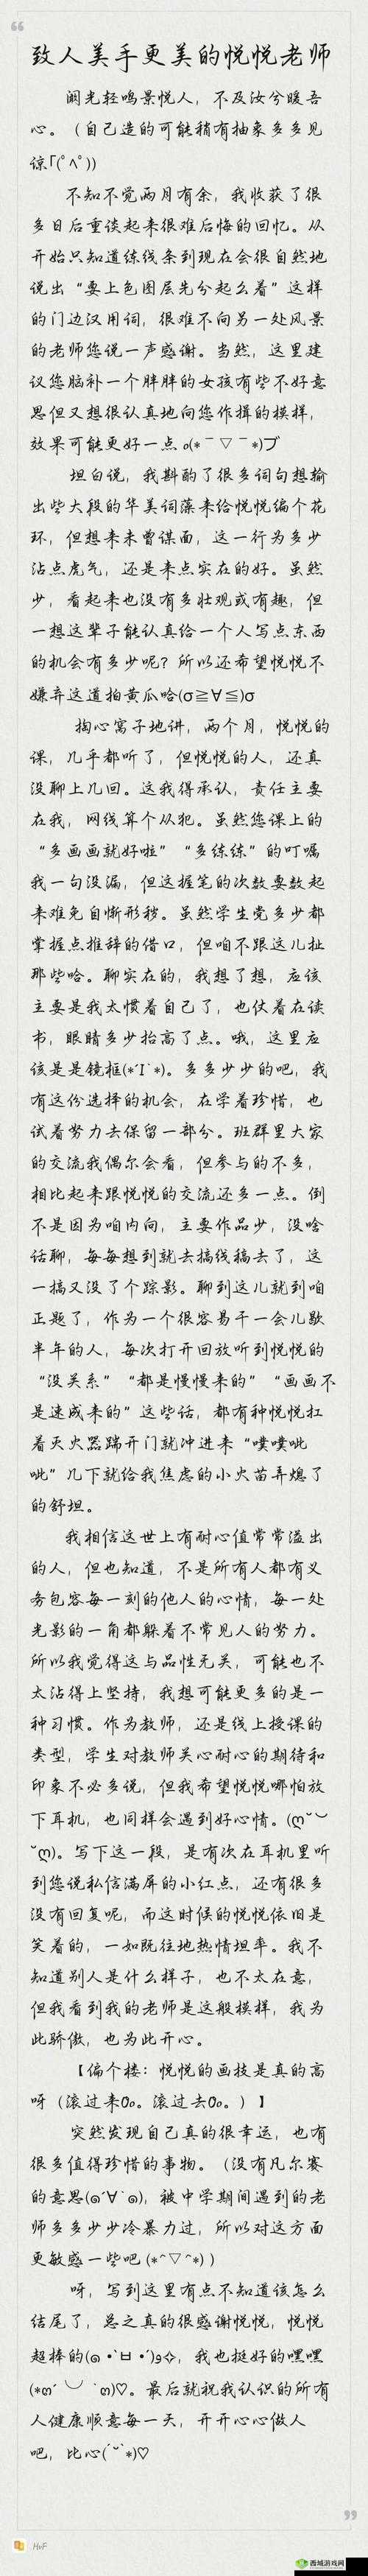 致人美手更美的悦悦老师
阙光轻鸣景悦人，不及汝兮暖吾
心。（自己造的可能稍有抽象多多见
谅「(ﾟ^ﾟ)）
不知不觉两月有余，我收获了很
多日后重谈起来很难后悔的回忆。从
开始只知道练线条到现在会很自然地
说出“要上色图层先分起么着”这样
的门边汉用词，很难不向另一处风景
的老师您说一声感谢。当然，这里建
议您脑补一个胖胖的女孩有些不好意
思但又想很认真地向您作揖的模样，
效果可能更好一点 o(*￣▽￣*)ブ
坦白说，我斟酌了很多词句想输
出些大段的华美词藻来给悦悦编个花
环，但想来未曾谋面，这一行为多少
沾点虎气，还是来点实在的好。虽然
少，看起来也没有多壮观或有趣，但
一想这辈子能认真给一个人写点东西
的机会有多少呢？所以还希望悦悦不
嫌弃这道拍黄瓜哈(σ≧∀≦)σ
掏心窝子地讲，两个月，悦悦的
课，几乎都听了，但悦悦的人，还真
没聊上几回。这我得承认，责任主要
在我，网线算个从犯。虽然您课上的
“多画画就好啦”“多练练”的叮嘱
我一句没漏，但这握笔的次数要数起
来难免自惭形秽。虽然学生党多少都
掌握点推辞的借口，但咱不跟这儿扯
那些哈。聊实在的，我想了想，应该
主要是我太惯着自己了，也仗着在读
书，眼睛多少抬高了点。哦，这里应
该是是镜框(*´I`*)。多多少少的吧，我
有这份选择的机会，在学着珍惜，也
试着努力去保留一部分。班群里大家
的交流我偶尔会看，但参与的不多，
相比起来跟悦悦的交流还多一点。倒
不是因为咱内向，主要作品少，没啥
话聊，每每想到就去搞线稿去了，这
一搞又没了个踪影。聊到这儿就到咱
正题了，作为一个很容易干一会儿歇
半年的人，每次打开回放听到悦悦的
“没关系”“都是慢慢来的”“画画不
是速成来的”这些话，都有种悦悦扛
着灭火器踹开门就冲进来“噗噗呲
呲”几下就给我焦虑的小火苗弄熄了
的舒坦。
我相信这世上有耐心值常常溢出
的人，但也知道，不是所有人都有义
务包容每一刻的他人的心情，每一处
光影的一角都躲着不常见人的努力。
所以我觉得这与品性无关，可能也不
太沾得上坚持，我想可能更多的是一
种习惯。作为教师，还是线上授课的
类型，学生对教师关心耐心的期待和
印象不必多说，但我希望悦悦哪怕放
下耳机，也同样会遇到好心情。(ღ˘⌣
˘ღ)。写下这一段，是有次在耳机里听
到您说私信满屏的小红点，还有很多
没有回复呢，而这时候的悦悦依旧是
笑着的，一如既往地热情坦率。我不
知道别人是什么样子，也不太在意，
但我看到我的老师是这般模样，我为
此骄傲，也为此开心。
【偏个楼：悦悦的画技是真的高
呀（滚过来Oo。滚过去Oo。）】
突然发现自己真的很幸运，也有
很多值得珍惜的事物。（没有凡尔赛
的意思(๑´∀`๑)，被中学期间遇到的老
师多多少少冷暴力过，所以对这方面
更敏感一些吧 (*^▽^*) ）
呀，写到这里有点不知道该怎么
结尾了，总之真的很感谢悦悦，悦悦
超棒的(๑•̀ㅂ•́)و✧，我也挺好的嘿嘿
(*ෆ´ ︶ `ෆ)♡。最后就祝我认识的所有
人健康顺意每一天，开开心心做人
吧，比心(˘͈ᵕ˘͈*)♡
HvF
西域游戏网